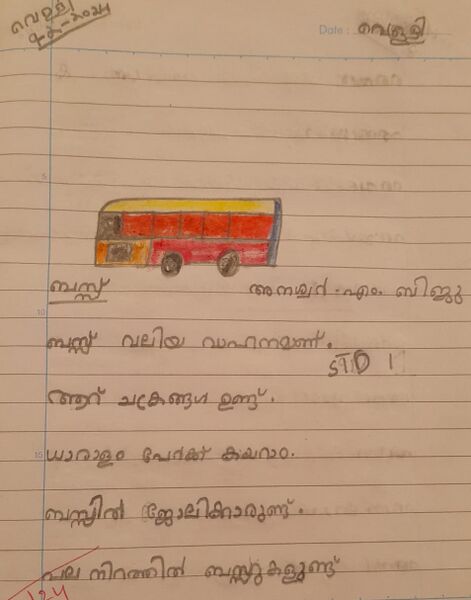 വെള്ളി
Date : വെള്ളി
ബസ്സ്
എം. ബിജു
ബസ്സ് വലിയ വാഹനമാണ്.
STD 1
ആറ് ചക്രങ്ങൾ ഉണ്ട്.
ധാരാളം പേർക്ക് കയറാം.
ബസ്സിൽ ജോലിക്കാരുണ്ട്.
പല നിറത്തിൽ ബസ്സുകളുണ്ട്